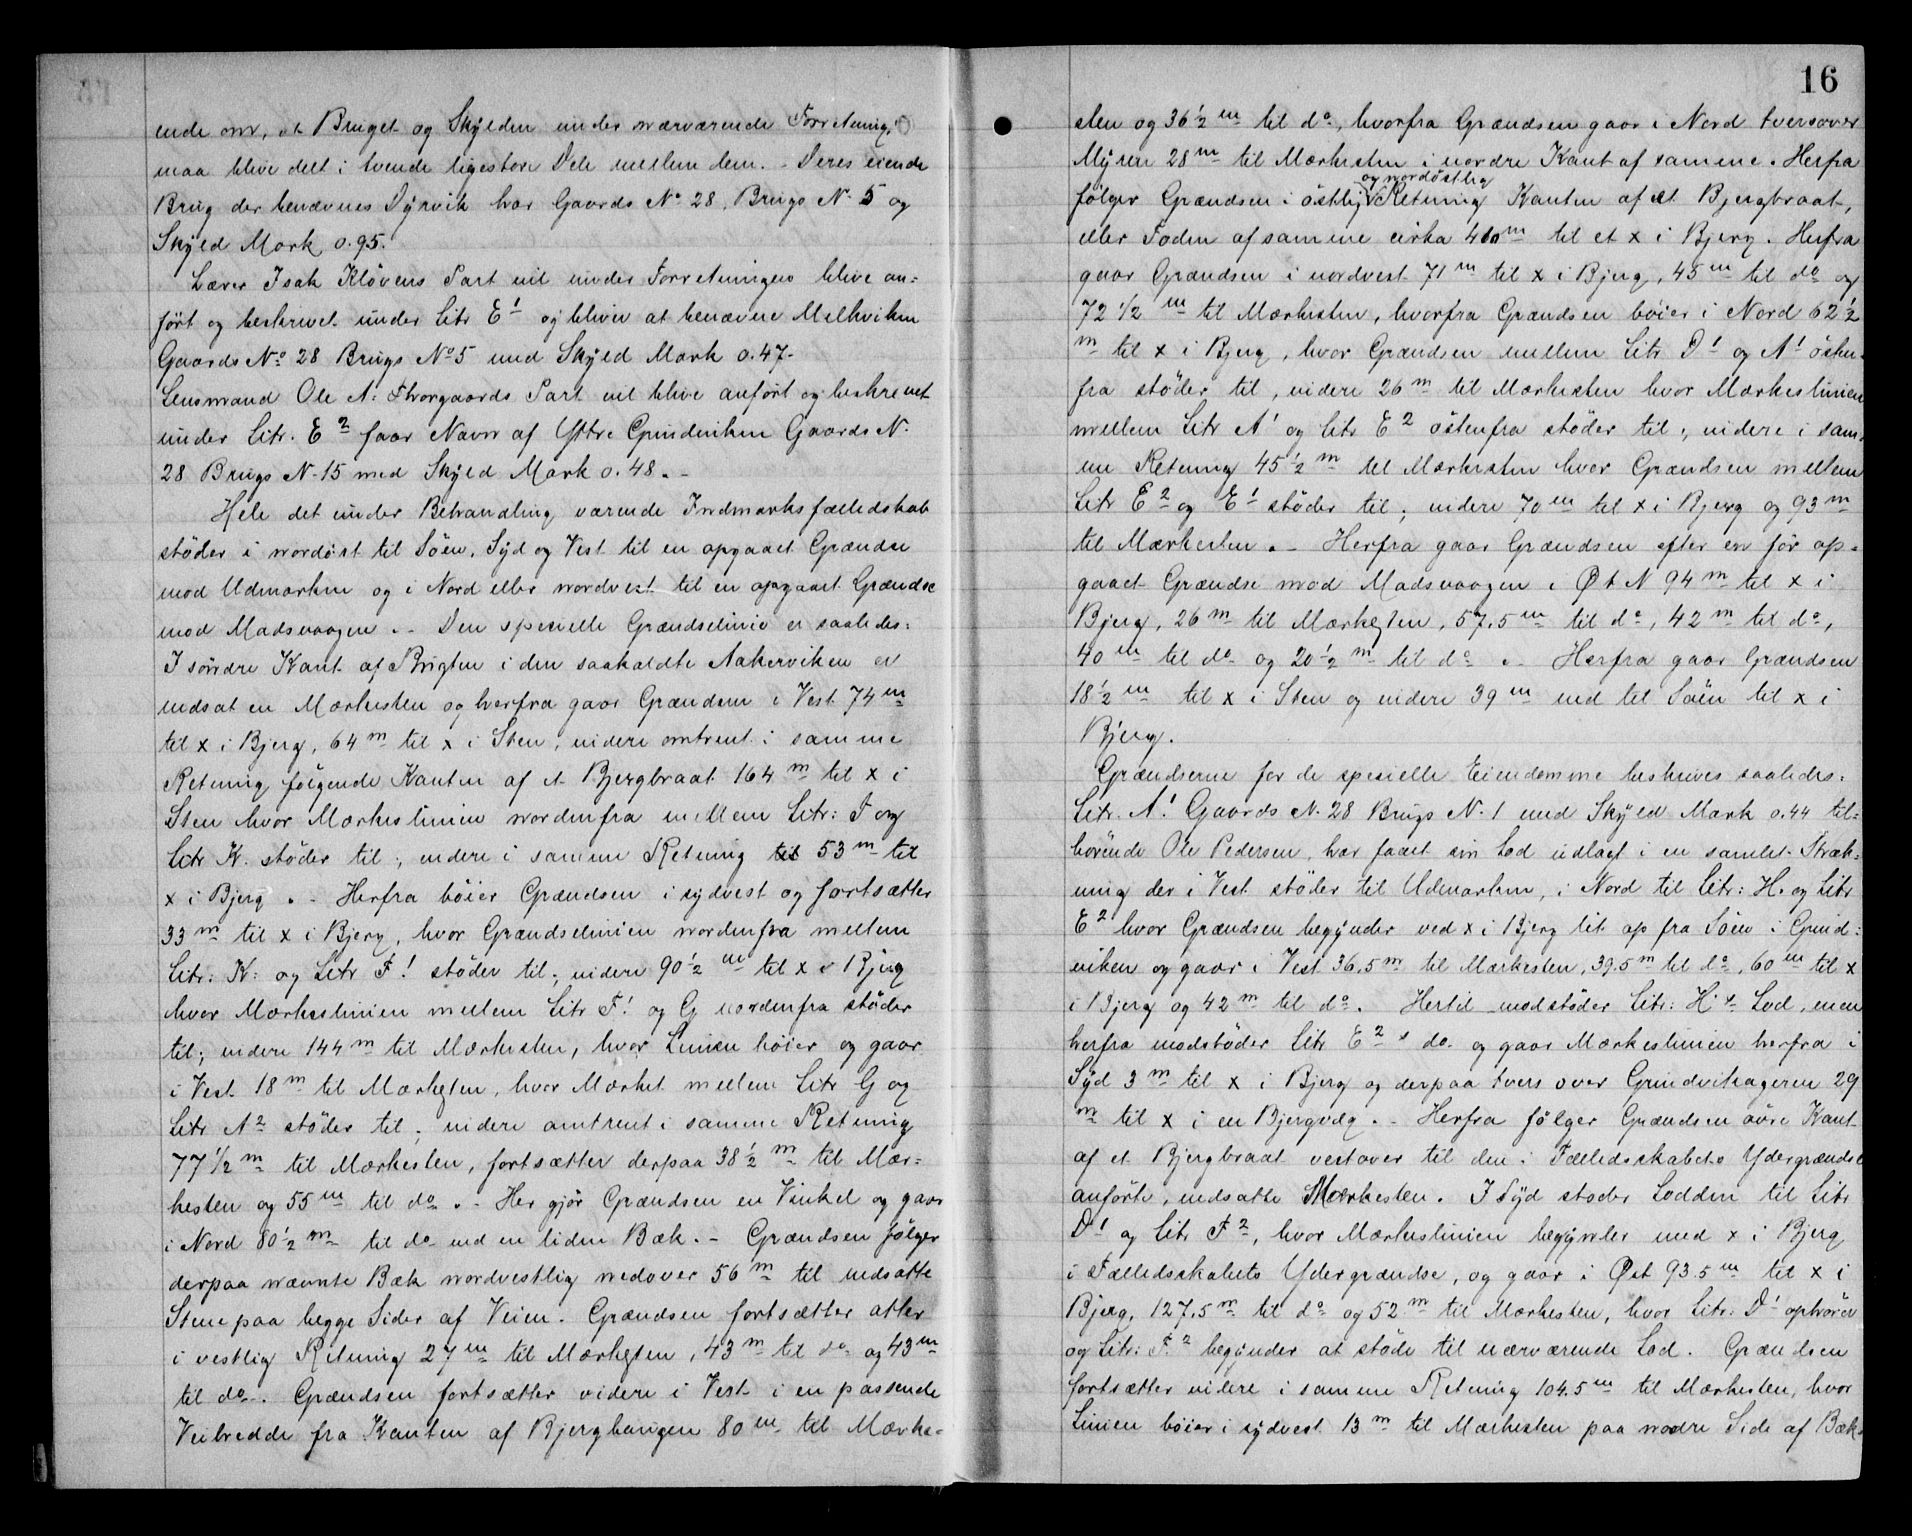 ende om, at Bruget og Skylden under nærværende Forretning
maa blive delt i tvende ligestore Dele mellem dem. - Deres eiende
Brug der benævnes Dyrvik har Gaards No 28, Brugs N. 5 og
Skyld Mark 0.95.
Lærer Isak Kløvens Part vil under Forretningen blive an:
ført og beskrivet under Litr E1 og bliver at benævne Melkviken
Gaards No 28 Brugs No 5 med Skyld Mark 0.47-
Lensmand Ole A: Thorgaards Part vil blive anført og beskrevet
under Litr. E2 faar Navn af Yttre Grindviken Gaards N.
28 Brugs N. 15 med Skyld Mark 0.48. -
Hele det under Behandling værende Indmarksfælledskab
støder i nordøst til Søen, Syd og Vest til en opgaaet Grændse
mod Udmarken og i Nord eller nordvest til en opgaaet Grændse
mod Madsvaagen. - Den specielle Grændselinie er saaledes:
I søndre Kant af Brigten i den saakaldte Nakerviken er
nedsat en Mærkesten og herfra gaar Grændsen i Vest 74 m
til x i Bjerg, 64 m til x i Sten, videre omtrent i samme
Retning følgende Kanten af et Bjergbraat 164 m til x i
Sten hvor Mærkeslinien nordenfra mellem Litr: F og
Litr K. støder til, videre i samme Retning til 53 m til
x i Bjerg. - Herfra bøier Grændsen i sydvest og fortsætter
33 m til x i Bjerg, hvor Grændselinien nordenfra mellem
Litr: K: og Litr F1 støder til; videre 90 1/2 m til x i Bjerg
hvor Mærkeslinien mellem Litr F1 og G nordenfra støder
til; videre 144 m til Mærkesten, hvor Linien bøier og gaar
i Vest 18 m til Mærkesten, hvor Mærket mellem Litr G og
Litr A2 støder til; videre omtrent i samme Retning
77 1/2 m til Mærkesten, fortsætter derpaa 38 1/2 m til Mær:
kesten og 55 m til do. - Her gjør Grændsen en Vinkel og gaar
i Nord 80 1/2 m til do ved en liden Bæk. - Grændsen følger
derpaa nævnte Bæk nordvestlig nedover 56 m til nedsatte
Stene paa begge Sider af Veien. Grændsen fortsætter atter
i vestlig Retning 27 m til Mærkesten, 43 m til do og 43 m
til do. Grændsen fortsætter videre i Vest i en passende
Veibredde fra Kanten af Bjerghangen 80 m til Mærke-
16
sten og 36 1/2 m til do, hvorfra Grændsen gaar i Nord tversover
Myren 28 m til Mærkesten i nordre Kant af samme. Herfra
og nordøstlig
følger Grændsen i østlig Retning Kanten af et Bjergbraat,
eller Foden af samme cirka 400 m til et x i Bjerg. Herfra
gaar Grændsen i nordvest 71 m til x i Bjerg, 45 m til do og
72 1/2 m til Mærkesten, hvorfra Grændsen bøier i Nord 62 1/2
m til x i Bjerg, hvor Grændsen mellem Litr D1 og A1 østen-
fra støder til, videre 26 m til Mærkesten hvor Mærkeslinien
mellem Litr A1 og Litr E2 østenfra støder til, videre i sam-
me Retning 45 1/2 m til Mærkesten hvor Grændsen mellem
Litr E2 og E1 støder til; videre 70 m til x i Bjerg og 93 m
til Mærkesten. - Herfra gaar Grændsen efter en før op-
gaaet Grændse mod Madsvaagen i Øst N 94 m til x i
Bjerg, 26 m til Mærkesten, 57.5 m til do, 42 m til do,
40 m til do og 20 1/2 m til do. - Herfra gaar Grændsen
18 1/2 m til x i Sten og videre 39 m ned til Søen til x i
Bjerg.
Grændserne for de specielle Eiendomme beskrives saaledes:
Litr. A1 Gaards N. 28 Brugs N. 1 med Skyld Mark 0.44 til:
hørende Ole Pedersen, har faaet sin Lod udlagt i en samlet Stræk:
ning der i Vest støder til Udmarken, i Nord til Litr: H. og Litr
E2 hvor Grændsen begynder ved x i Bjerg lit op fra Søen i Grind:
viken og gaar i Vest 36.5 m til Mærkesten, 39.5 m til do, 60 m til x
i Bjerg og 42 m til do. Hertil modstøder Litr: H's Lod, men
herfra modstøder Litr E2s do og gaar Mærkeslinien herfra i
Syd 3 m til x i Bjerg og derpaa tvers over Grindvikageren 29
m til x i en Bjergvæg. - Herfra følger Grændsen øvre Kant
af et Bjergbraat vestover til den i Fælledsskabets Ydergrændse
anførte, nedsatte Mærkesten. I Syd støder Lodden til Litr
D1 og Litr F2, hvor Mærkeslinien begynder med x i Bjerg
i Fælledsskabets Ydergrændse, og gaar i Øst 93.5 m til x i
Bjerg, 127.5 m til do og 52 m til Mærkesten, hvor Litr: D1 ophører
og Litr: F2 begynder at støde til nærværende Lod. Grændsen
fortsætter videre i samme Retning 104.5 m til Mærkesten, hvor
Linien bøier i sydvest 13 m til Mærkesten paa nordre Side af Bæk-